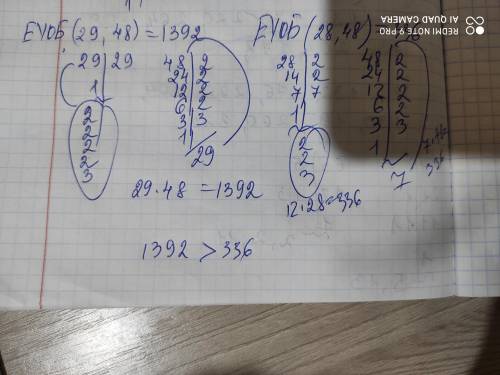 ЕҮОБ (29, 48) = 1392
29 | 29
1
2
2
2
2
3
48 | 2
24 | 2
12 | 2
6 | 2
3 | 3
1
29
29 · 48 = 1392
ЕҮОБ (28, 48) =
28 | 2
14 | 2
7 | 7
1
2
2
3
48 | 2
24 | 2
12 | 2
6 | 2
3 | 3
1
7
336
12 · 28 = 336
1392 > 336
REDMI NOTE 9 PRO
AI QUAD CAMERA